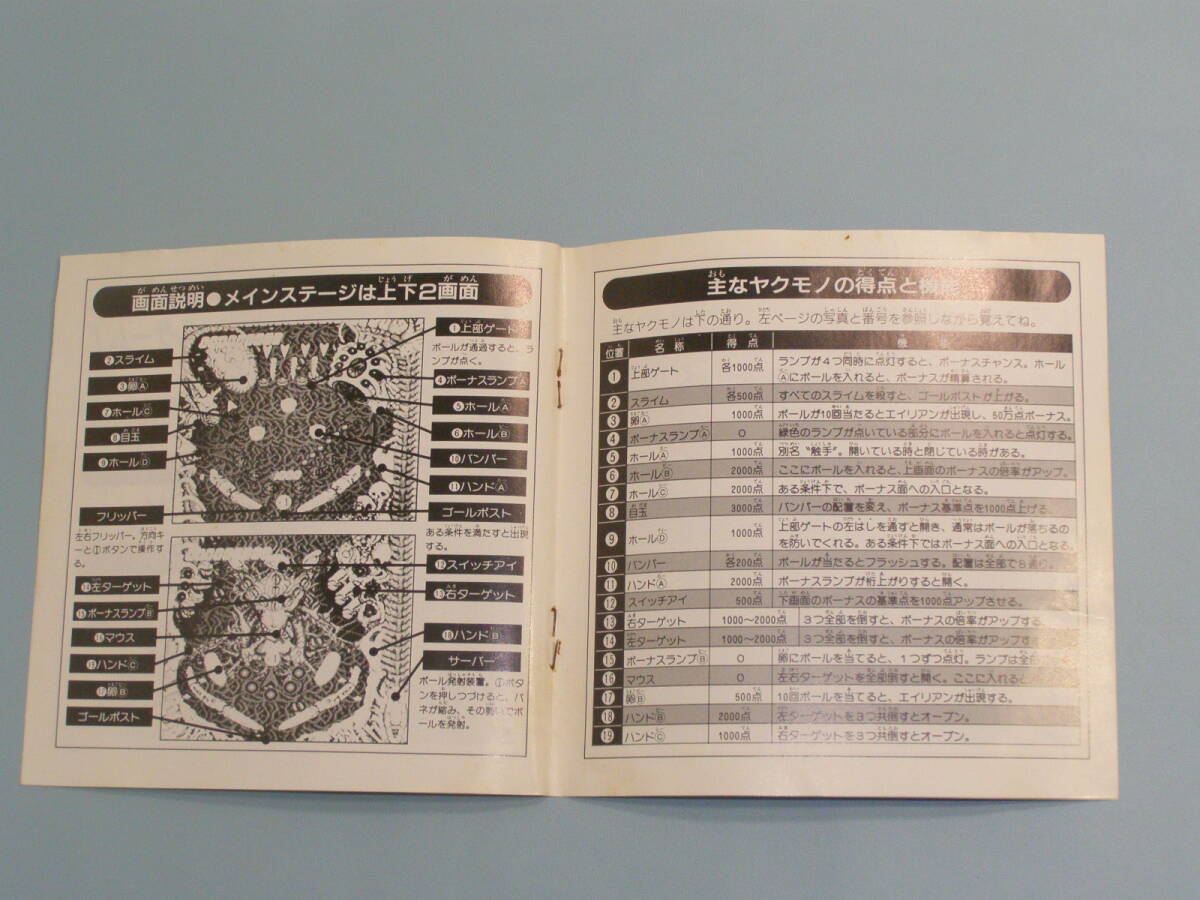 画面説明●メインステージは上下2画面
①上部ゲート
ボールが通過すると、ラ
ンプが点く。
②スライム
③卵Ⓐ
④ボーナスランプⒶ
⑤ホールⒶ
⑦ホールⒸ
⑥ホールⒷ
⑧目玉
⑩バンパー
⑨ホールⒹ
⑪ハンドⒶ
フリッパー
左右フリッパー。方向キ
ーと①ボタンで操作す
る。
ゴールポスト
ある条件を満たすと出現
する。
⑫スイッチアイ
⑭左ターゲット
⑬右ターゲット
⑮ボーナスランプⒷ
⑯マウス
⑱ハンドⒷ
⑲ハンドⒸ
サーバー
ボール発射装置。①ボタ
ンを押しつづけると、バ
ネが縮み、その勢いでボ
ールを発射。
⑰卵Ⓑ
ゴールポスト
主なヤクモノの得点と機能
主なヤクモノは下の通り。左ページの写真と番号を参照しながら覚えてね。
位置 名称 得点 機能
① 上部ゲート 各1000点 ランプが4つ同時に点灯すると、ボーナスチャンス。ホール
Ⓐにボールを入れると、ボーナスが精算される。
② スライム 各500点 すべてのスライムを殺すと、ゴールポストが上がる。
③ 卵Ⓐ 1000点 ボールが10回当たるとエイリアンが出現し、50万点ボーナス。
④ ボーナスランプⒶ 0 緑色のランプが点いている部分にボールを入れると点灯する。
⑤ ホールⒶ 1000点 別名〝触手〟。開いている時と閉じている時がある。
⑥ ホールⒷ 2000点 ここにボールを入れると、上画面のボーナスの倍率がアップ。
⑦ ホールⒸ 2000点 ある条件下で、ボーナス面への入口となる。
⑧ 目玉 3000点 バンパーの配置を変え、ボーナス基準点を1000点上げる。
⑨ ホールⒹ 1000点 上部ゲートの左はしを通すと開き、通常はボールが落ちるの
を防いでくれる。ある条件下ではボーナス面への入口となる。
⑩ バンパー 各200点 ボールが当たるとフラッシュする。配置は全部で8通り。
⑪ ハンドⒶ 2000点 ボーナスランプが桁上がりすると開く。
⑫ スイッチアイ 500点 下画面のボーナスの基準点を1000点アップさせる。
⑬ 右ターゲット 1000〜2000点 3つ全部を倒すと、ボーナスの倍率がアップする
⑭ 左ターゲット 1000〜2000点 3つ全部を倒すと、ボーナスの倍率がアップする
⑮ ボーナスランプⒷ 0 卵にボールを当てると、1つずつ点灯。ランプは全部
⑯ マウス 0 左右ターゲットを全部倒すと開く。ここに入れると
⑰ 卵Ⓑ 500点 10回ボールを当てると、エイリアンが出現する。
⑱ ハンドⒷ 2000点 左ターゲットを3つ共倒すとオープン。
⑲ ハンドⒸ 1000点 右ターゲットを3つ共倒すとオープン。